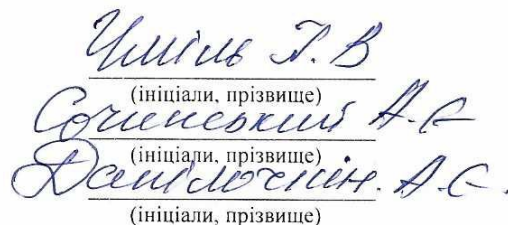 Уміль Т. В
(ініціали, прізвище)
Сочинський А.Є
(ініціали, прізвище)
Данілочкін. А.Є.
(ініціали, прізвище)